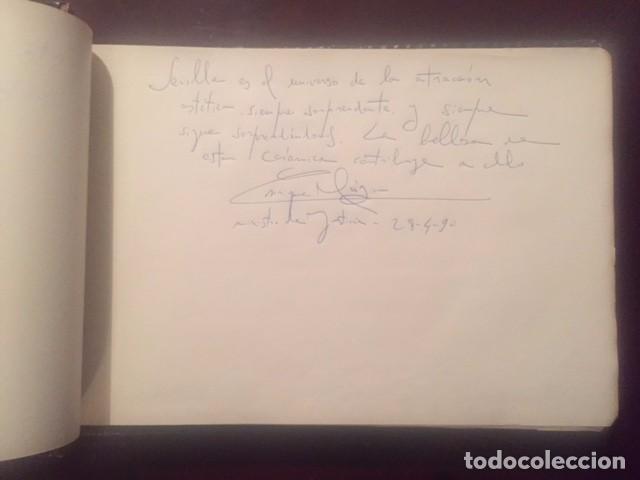 Sevilla es el universo de la atracción
estética siempre sorprendente y siempre
sigue sorprendiéndonos. La belleza de
esta cerámica contribuye a ello
Enrique Múgica
ministro de Justicia - 28-4-90
todocoleccion